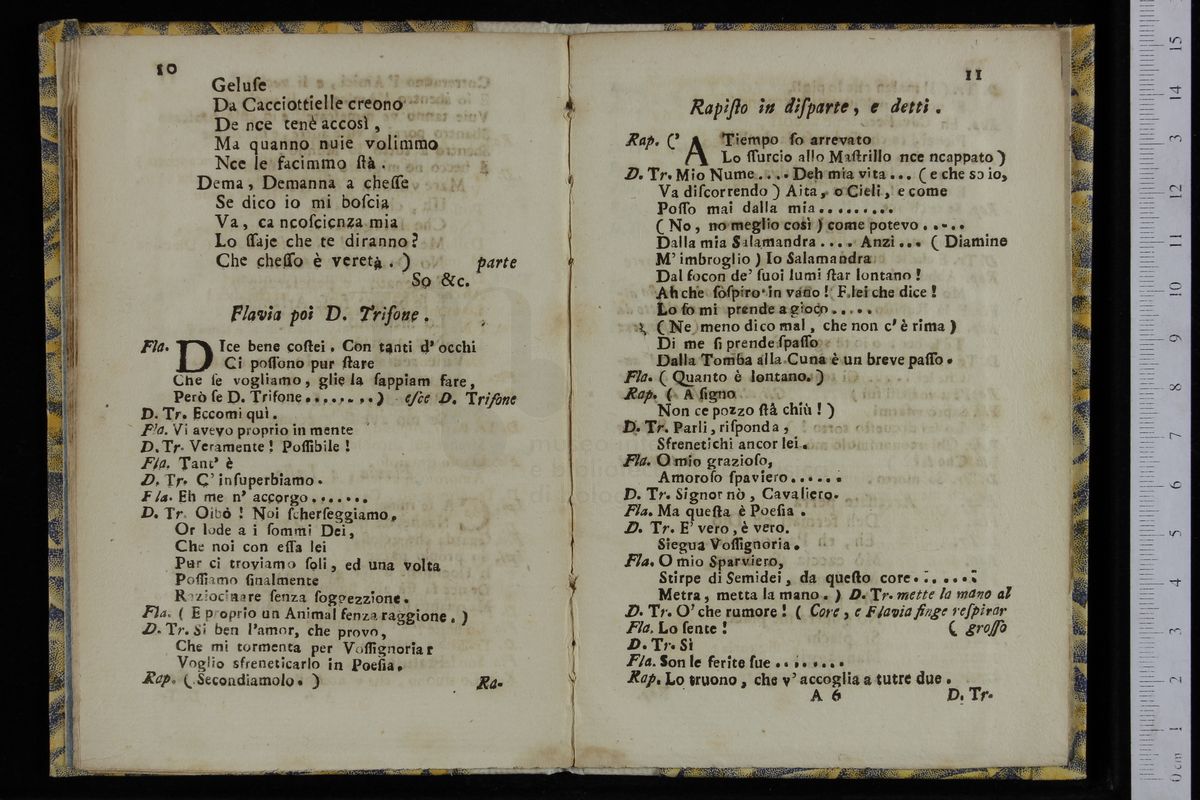 10
Geluſe
Da Cacciottielle creono
De nce tenè accosì ,
Ma quanno nuie volimmo
Nce le facimmo ſtà .
Dema , Demanna a cheſſe
Se dico io mi boſcia
Va , ca ncoſcienza mia
Lo ſſaje che te diranno ?
Che cheſſo è veretà . ) parte
So &c.
Flavia poi D. Triſone .
Fla. DIce bene coſtei . Con tanti d' occhi
Ci poſſono pur ſtare
Che ſe vogliamo , glie la ſappiam fare ,
Però ſe D. Trifone ........ ) eſce D. Triſone
D. Tr. Eccomi quì .
Fla. Vi avevo proprio in mente
D. Tr. Veramente ! Poſſibile !
Fla. Tant' è
D. Tr. C' inſuperbiamo .
Fla. Eh me n' accorgo .......
D. Tr. Oibò ! Noi ſcherſeggiamo ,
Or lode a i ſommi Dei ,
Che noi con eſſa lei
Pur ci troviamo ſoli , ed una volta
Poſſiamo finalmente
Raziocinare ſenza ſoggezzione .
Fla. ( E proprio un Animal ſenza raggione . )
D. Tr. Si ben l'amor, che provo,
Che mi tormenta per Voſſignoriar
Voglio sfreneticarlo in Poeſia .
Rap. ( Secondiamolo . )
Ra-
11
Rapiſto in diſparte , e detti .
Rap. (' A Tiempo ſo arrevato
Lo ſſurcio allo Maſtrillo nce ncappato )
D. Tr. Mio Nume .... Deh mia vita ... ( e che so io,
Va diſcorrendo ) Aita , o Cieli , e come
Poſſo mai dalla mia .........
( No , no meglio così ) come potevo .....
Dalla mia Salamandra .... Anzi ... ( Diamine
M' imbroglio ) Io Salamandra
Dal focon de' ſuoi lumi ſtar lontano !
Ah che ſoſpiro in vano ! E lei che dice !
Lo ſo mi prende a gioco .....
( Ne meno dico mal , che non c' è rima )
Di me ſi prende ſpaſſo
Dalla Tomba alla Cuna è un breve paſſo .
Fla. ( Quanto è lontano . )
Rap. ( A ſigno
Non ce pozzo ſtà chiù ! )
D. Tr. Parli , riſponda ,
Sfrenetichi ancor lei .
Fla. O mio grazioſo,
Amoroſo ſpaviero ......
D. Tr. Signor nò , Cavaliero .
Fla. Ma queſta è Poeſia .
D. Tr. E' vero , è vero .
Siegua Voſſignoria .
Fla. O mio Sparviero,
Stirpe di Semidei , da queſto core .......
Metra , metta la mano . ) D. Tr. mette la mano al
D. Tr. O' che rumore ! ( Core , e Flavia finge reſpirar
Fla. Lo ſente ! ( groſſo
D. Tr. Si
Fla. Son le ferite ſue ........
Rap. Lo truono , che v' accoglia a tutre due .
A 6
D. Tr.
15
14
13
12
11
10
9
8
7
6
5
4
3
2
1
0 cm